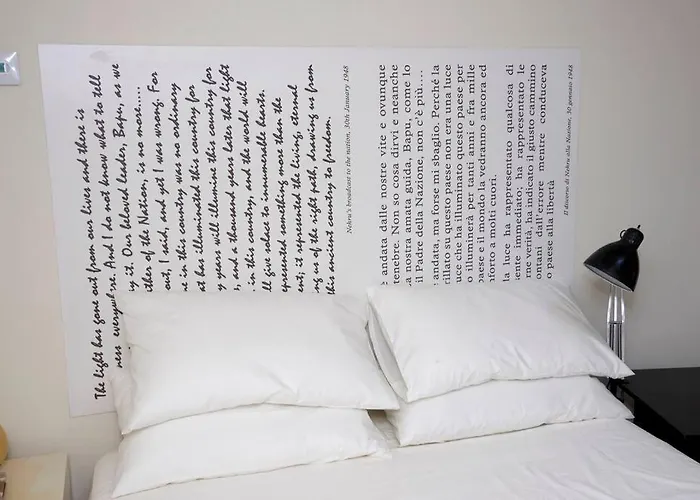 The light has gone out from our lives and there is
ness everywhere. And I do not know what to tell
y it. Our beloved leader, Bapu, as we
ther of the Nation, is no more.....
out, I said, and yet I was wrong. For
ne in this country was no ordinary
at has illuminated this country for
y years will illumine this country for
, and a thousand years later that light
in this country, and the world will
ll give solace to innumerable hearts.
epresented something more than the
ent; it represented the living, eternal
ng us of the right path, drawing us from
this ancient country to freedom.
Nehru's broadcast to the nation, 30th January 1948
è andata dalle nostre vite e ovunque
tenebre. Non so cosa dirvi e neanche
a nostra amata guida, Bapu, come lo
il Padre della Nazione, non c'è più....
andata, ma forse mi sbaglio. Perché la
rillato su questo paese non era una luce
uce che ha illuminato questo paese per
o illuminerà per tanti anni e fra mille
paese e il mondo la vedranno ancora ed
nforto a molti cuori.
la luce ha rappresentato qualcosa di
ente immediato; ha rappresentato le
rne verità, ha indicato il giusto cammino
ontani dall'errore mentre conduceva
o paese alla libertà
Il discorso di Nehru alla Nazione, 30 gennaio 1948